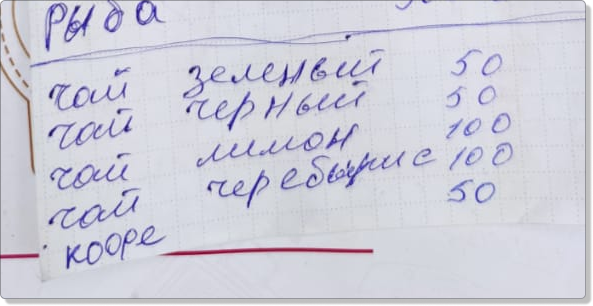 рыба
чай зеленый 50
чай черный 50
чай лимон 100
чай 100
кофе 50